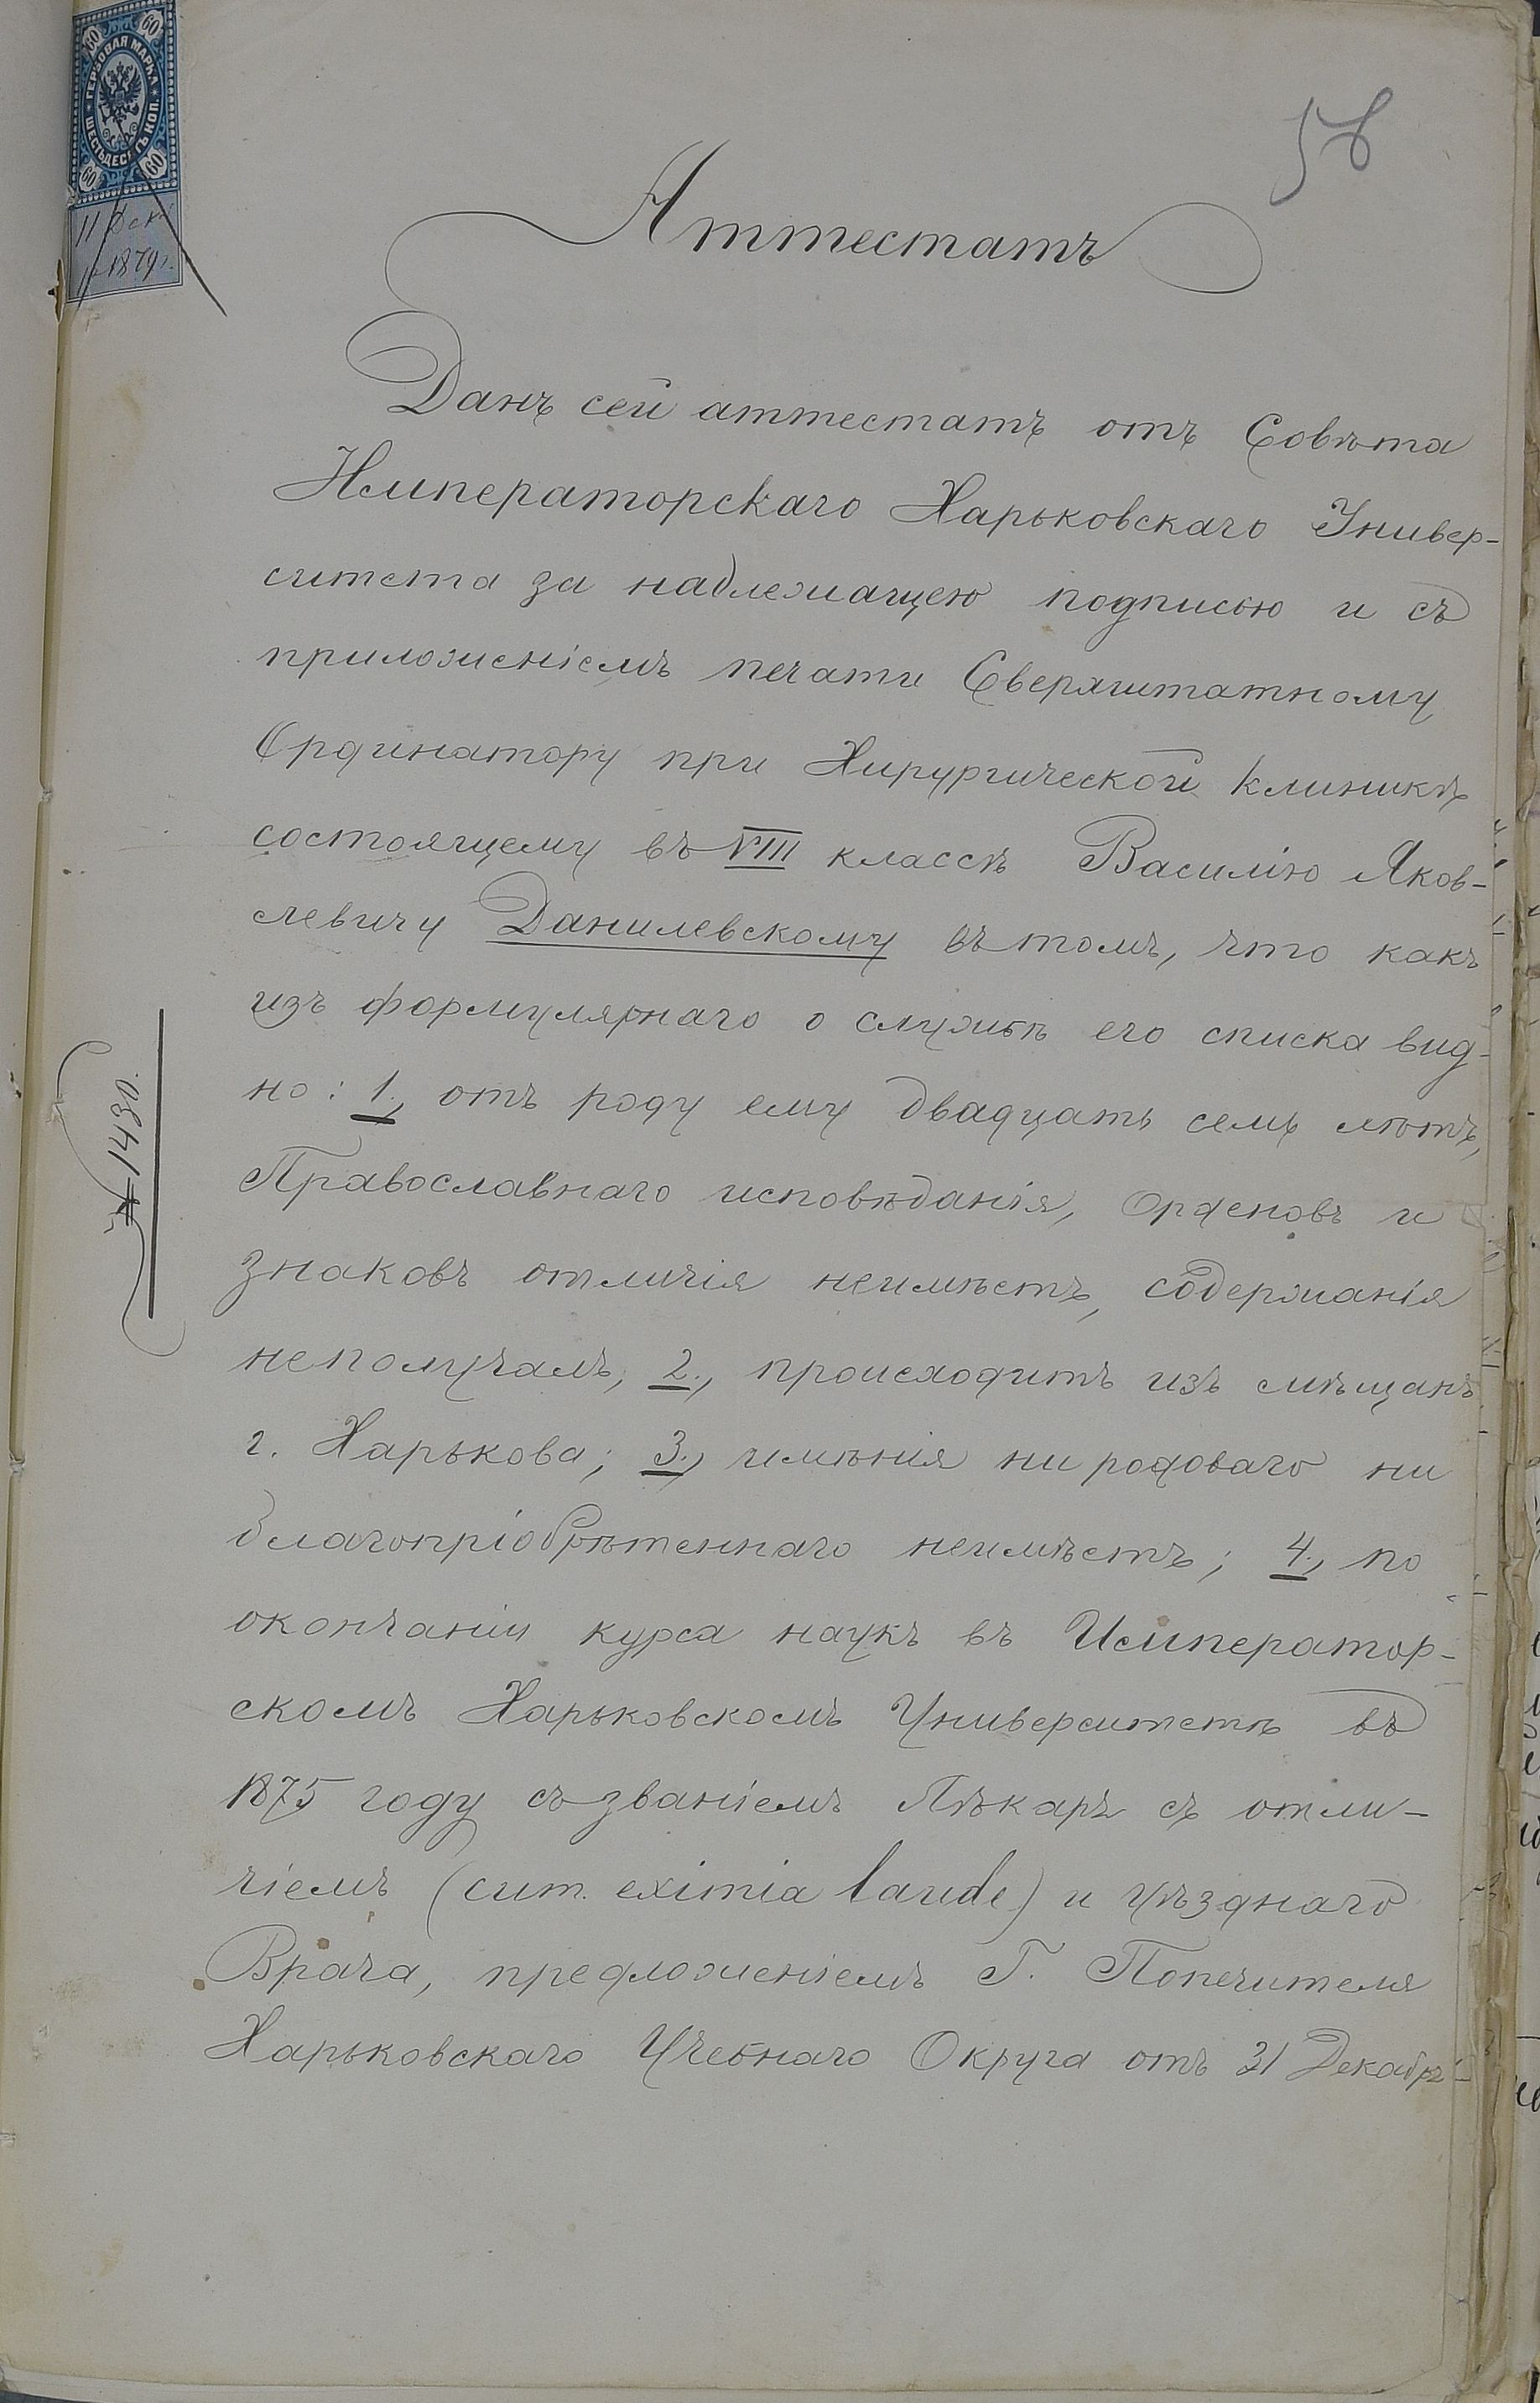 60 60
ГЕРБОВАЯ МАРКА
ШЕСТЬДЕСЯТЪ КОП.
60 60
11 Дек
1879 г.
58
Аттестатъ
Данъ сей аттестатъ отъ Совѣта
Императорскаго Харьковскаго Универ-
ситета за надлежащею подписью и съ
приложеніемъ печати Сверхштатному
Ординатору при Хирургической клиникѣ
состоящему въ VIII классѣ Василію Яков-
левичу Данилевскому въ томъ, что какъ
изъ формулярнаго о службѣ его списка вид-
но: 1., отъ роду ему двадцать семь лѣтъ,
Православнаго исповѣданія, Орденовъ и
знаковъ отличія неимѣетъ, содержанія
неполучалъ; 2., происходитъ изъ мѣщанъ
г. Харькова; 3., имѣнія ни родоваго ни
благопріобрѣтеннаго неимѣетъ; 4., по
окончаніи курса наукъ въ Император-
скомъ Харьковскомъ Университетѣ въ
1875 году съ званіемъ Лѣкаря съ отли-
чіемъ (cum eximia laude) и Уѣзднаго
Врача, предложеніемъ Г. Попечителя
Харьковскаго Учебнаго Округа отъ 31 Декабря
№ 1430.